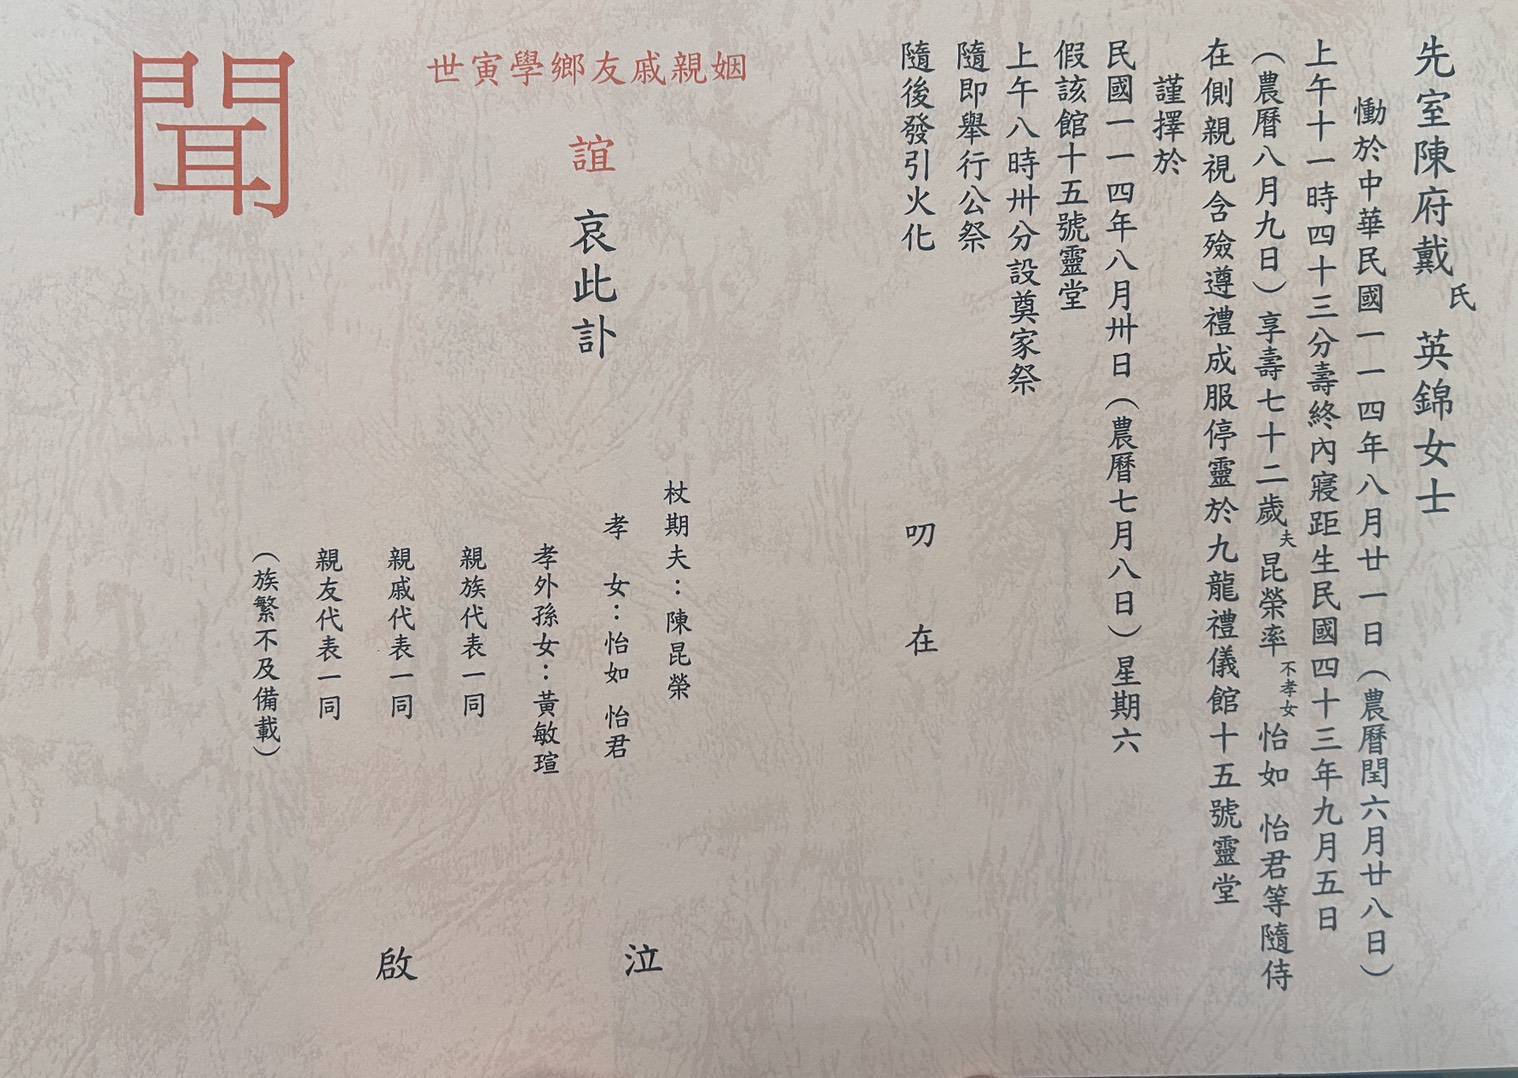 先室陳府戴氏 英錦女士
慟於中華民國一一四年八月廿一日(農曆閏六月廿八日)
上午十一時四十三分壽終內寢距生民國四十三年九月五日
(農曆八月九日)享壽七十二歲夫昆榮率不孝女怡如 怡君等隨侍
在側親視含殮遵禮成服停靈於九龍禮儀館十五號靈堂
謹擇於
民國一一四年八月卅日(農曆七月八日)星期六
假該館十五號靈堂
上午八時卅分設奠家祭
隨即舉行公祭
隨後發引火化
叨 在
姻親戚友鄉學寅世
誼
哀此訃
聞
杖期夫:陳昆榮
孝 女:怡如 怡君
孝外孫女:黃敏瑄
親族代表一同
親戚代表一同
親友代表一同
(族繁不及備載)
泣
啟